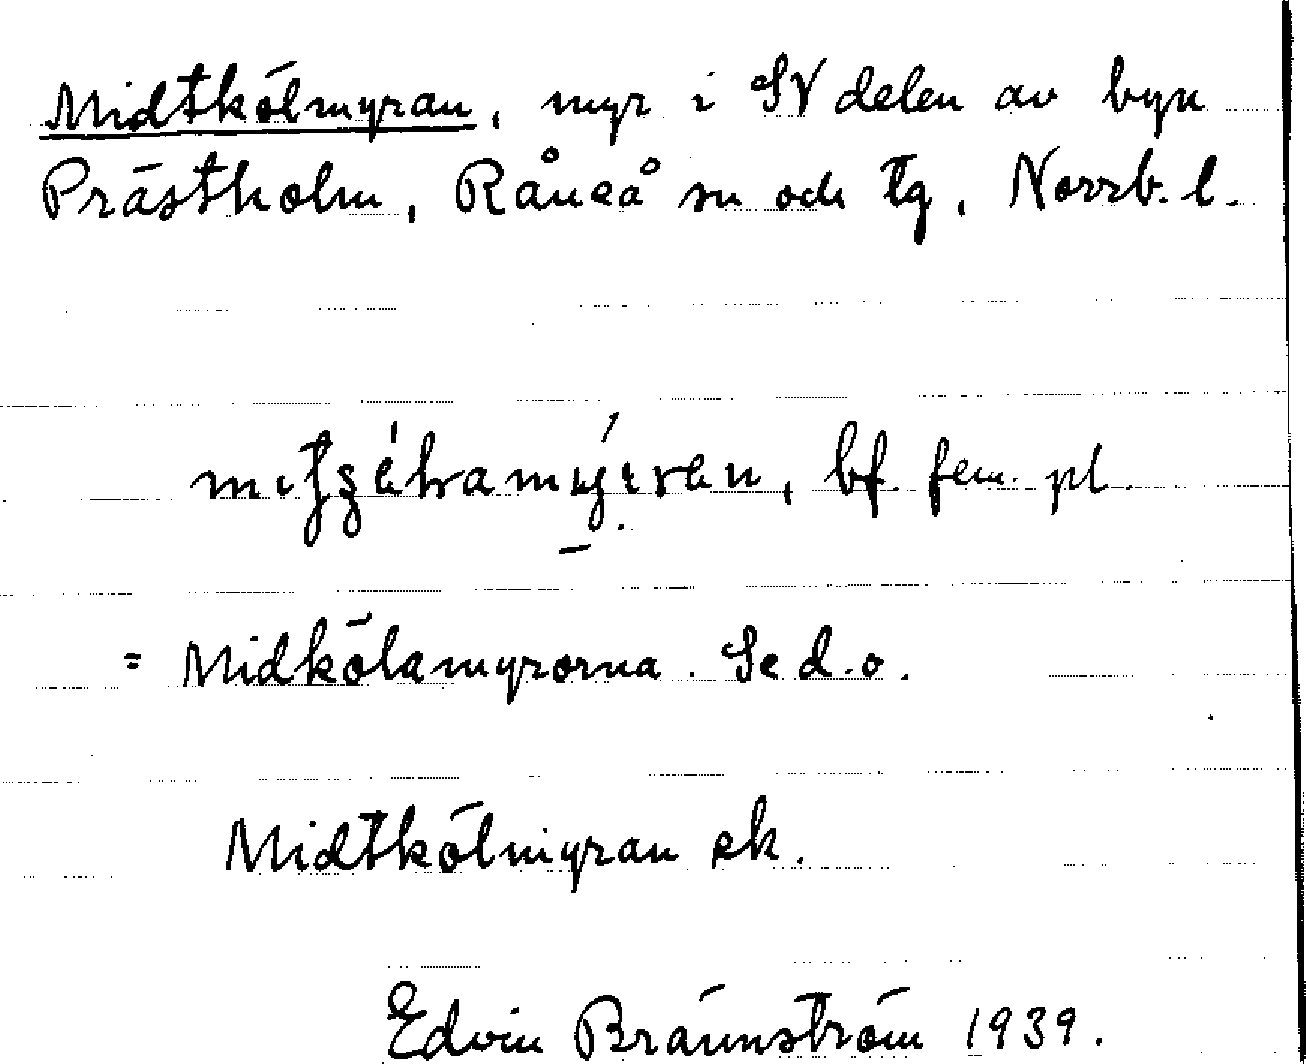 Midtkölmyran, myr i SV delen av byn
Prästholm, Råneå sn och tg, Norrb. l.
bf. fem. pl.
= Midkölamyrorna. Se d.o.
Midtkölmyran ek.
Edvin Brännström 1939.